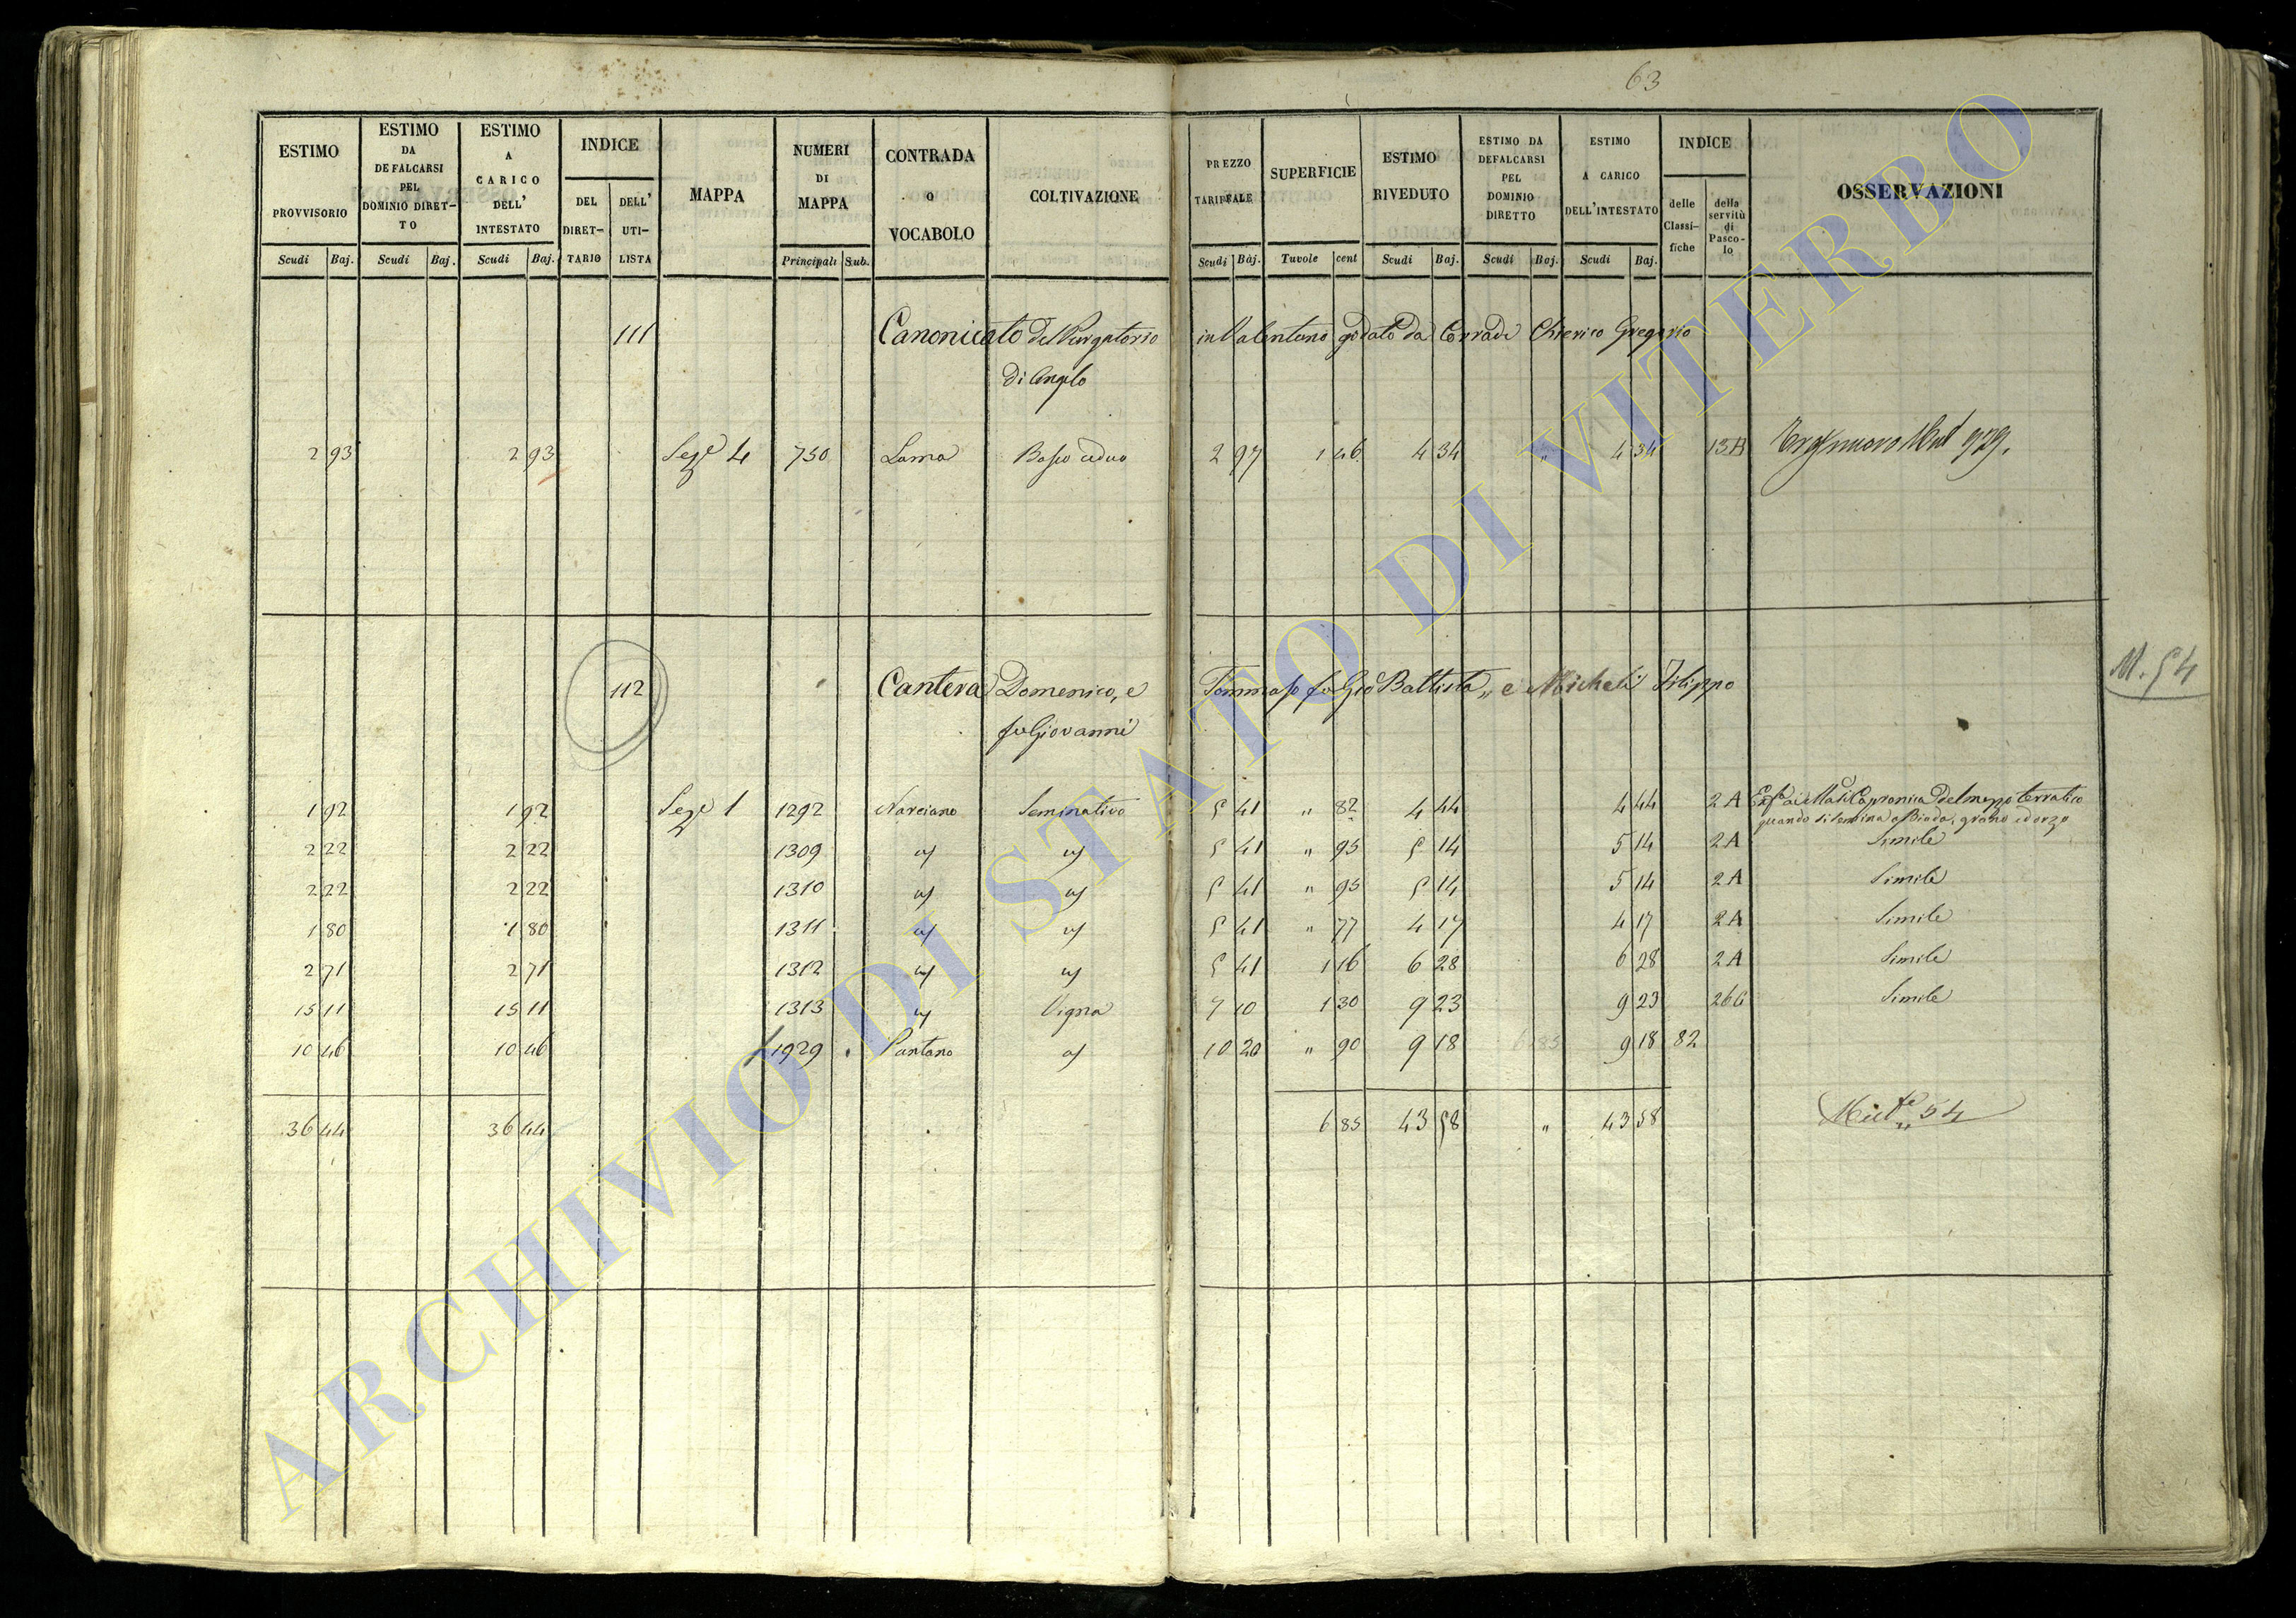 63
ESTIMO PROVVISORIO
ESTIMO DA DEFALCARSI PEL DOMINIO DIRETTO
ESTIMO A CARICO DELL' INTESTATO
INDICE
DEL DIRETTARIO
DELL' UTILISTA
MAPPA
NUMERI DI MAPPA
CONTRADA O VOCABOLO
COLTIVAZIONE
PREZZO TARIFFALE
SUPERFICIE
ESTIMO RIVEDUTO
ESTIMO DA DEFALCARSI PEL DOMINIO DIRETTO
ESTIMO A CARICO DELL'INTESTATO
INDICE
delle Classifiche
della servitù di Pascolo
OSSERVAZIONI
Scudi Baj. Scudi Baj. Scudi Baj. Principali Sub. Scudi Baj. Tavole cent Scudi Baj. Scudi Baj. Scudi Baj.
111 Canonicato del Purgatorio in Valentano goduto da Corradi Chierico Gregorio
di Angelo
2 93 2 93 Sezе 4 750 Lama Bosco ceduo 2 97 1 46 4 34 " 4 34 13B
112 Cantera Domenico, e Tommaso fu Gio Battista, e Micheli Filippo
fu Giovanni
M. 54
1 92 1 92 Sezе 1 1292 Narciano Seminativo 5 41 " 82 4 44 4 44 2A del mezzo terratico
quando si semina a Biada, grano ed orzo
2 22 2 22 1309 " " 5 41 " 95 5 14 5 14 2A Simile
2 22 2 22 1310 " " 5 41 " 95 5 14 5 14 2A Simile
1 80 1 80 1311 " " 5 41 " 77 4 17 4 17 2A Simile
2 71 2 71 1312 " " 5 41 1 16 6 28 6 28 2A Simile
15 11 15 11 1313 " Vigna 7 10 1 30 9 23 9 23 26G Simile
10 46 10 46 1929 Pantano " 10 20 " 90 9 18 9 18 82
36 44 36 44 6 85 43 58 " 43 58 54
ARCHIVIO DI STATO DI VITERBO